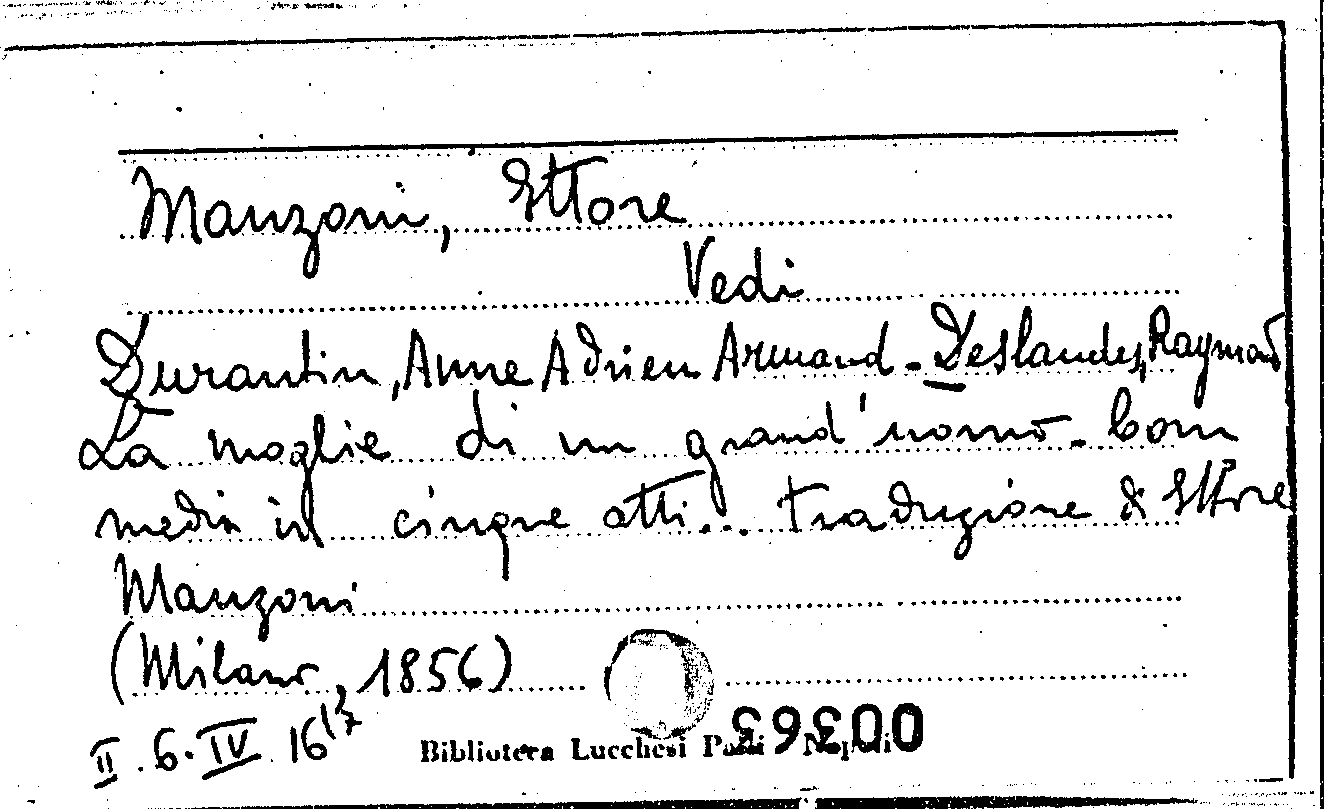 Manzoni, Ettore
Vedi
Durantin, Anne Adrien Armand - Deslandes, Raymond
La moglie di un grand'uomo - Com
media in cinque atti... traduzione di Ettore
Manzoni
(Milano, 1856)
II. 6. IV 16 17
Biblioteca Lucchesi Palli Napoli